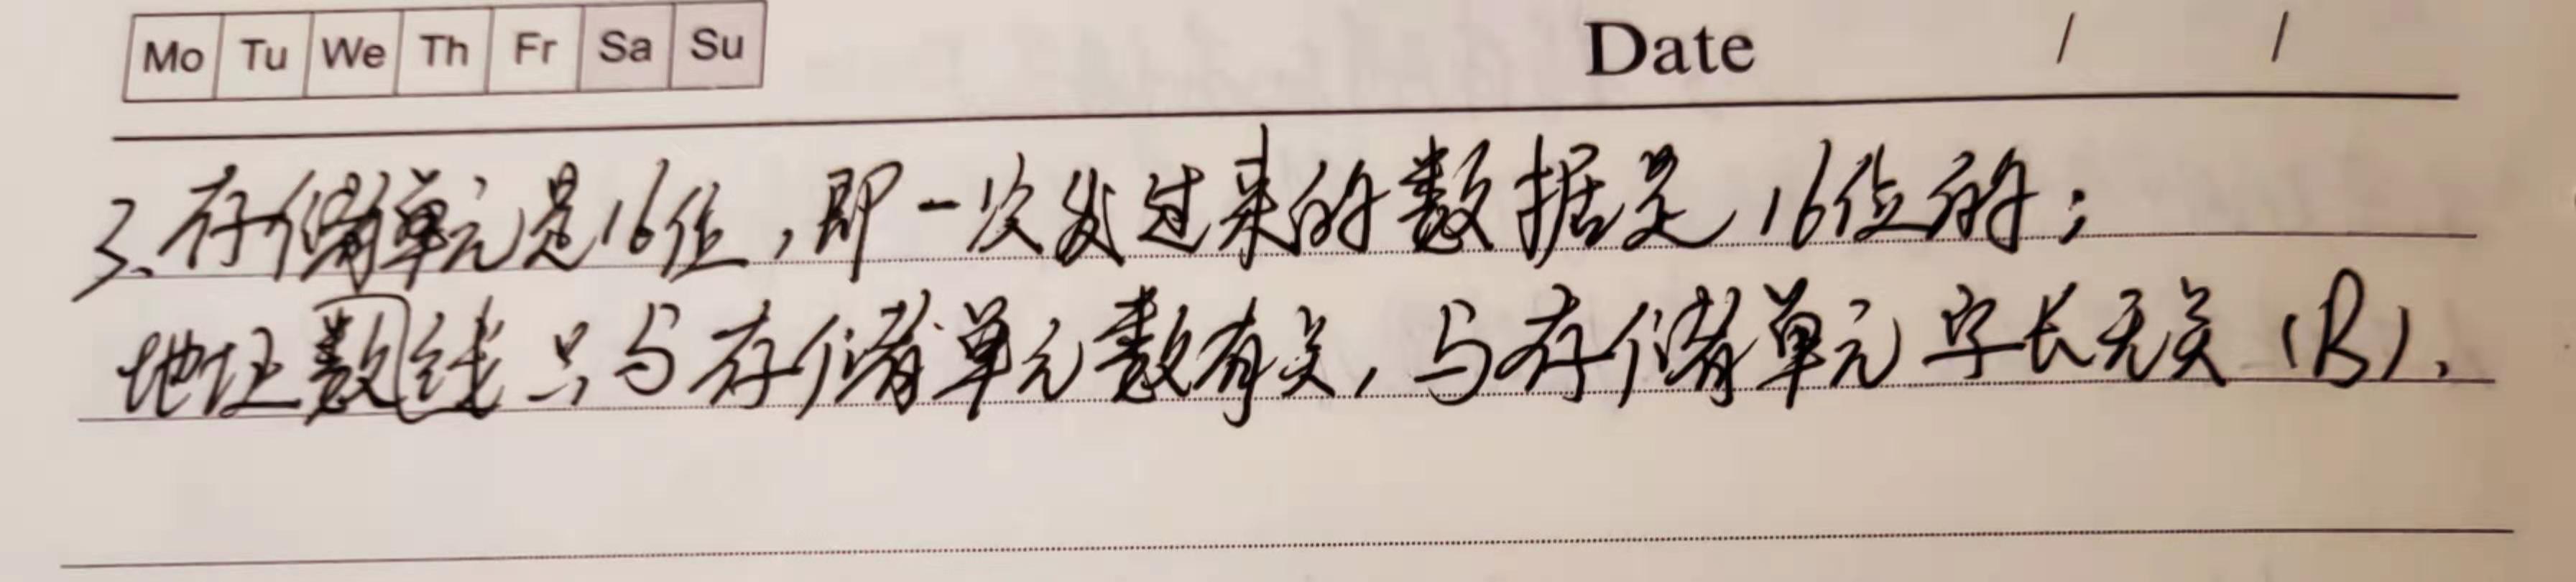 Mo Tu We Th Fr Sa Su Date / /
3、存储单元是16位，即一次发过来的数据是16位的；
地址数线只与存储单元数有关，与存储单元字长无关（B）、